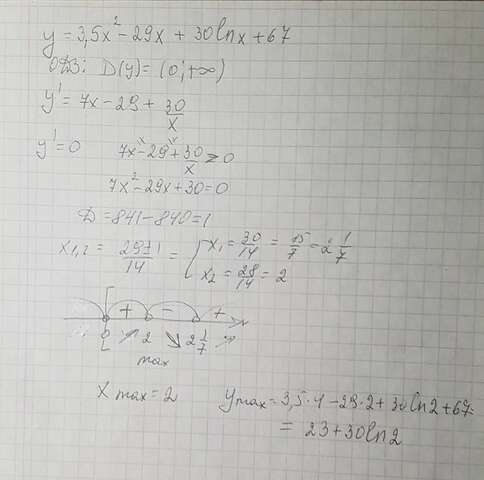 y = 3,5x² - 29x + 30lnx + 67
ОДЗ: D(y) = (0; +∞)
y' = 7x - 29 + 30/x
y' = 0   7x - 29 + 30/x = 0
7x² - 29x + 30 = 0
D = 841 - 840 = 1
x1,2 = 29±1/14 = { x1 = 30/14 = 15/7 = 2 1/7
x2 = 28/14 = 2
+ - +
0 ↗ 2 ↘ 2 1/7 ↗ x
max
x max = 2   y max = 3,5·4 - 29·2 + 30ln2 + 67 =
= 23 + 30ln2